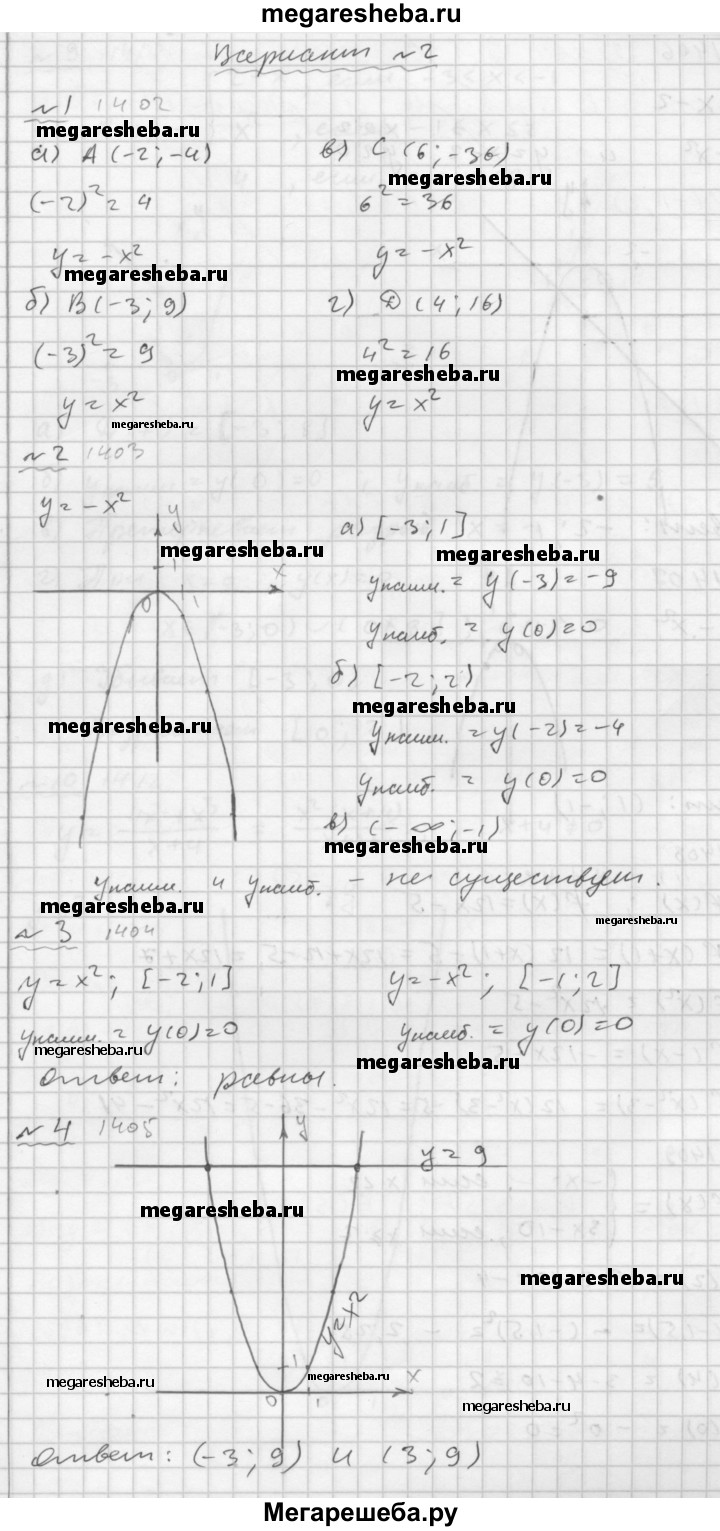 megaresheba.ru
Вариант №2
№1 1402
megaresheba.ru
а) A (-2; -4)
в) C (6; -36)
megaresheba.ru
(-2)² = 4
6² = 36
y = -x²
y = -x²
megaresheba.ru
б) B (-3; 9)
г) D (4; 16)
(-3)² = 9
4² = 16
megaresheba.ru
y = x²
y = x²
megaresheba.ru
№2 1403
y = -x²
y
а) [-3; 1]
megaresheba.ru
megaresheba.ru
1
x
0
1
yнаим. = y(-3) = -9
yнаиб. = y(0) = 0
б) [-2; 2)
megaresheba.ru
megaresheba.ru
yнаим. = y(-2) = -4
yнаиб. = y(0) = 0
в) (-∞; -1)
megaresheba.ru
yнаим. и yнаиб. - не существует.
megaresheba.ru
megaresheba.ru
№3 1404
y = x²; [-2; 1]
y = -x²; [-1; 2]
yнаим. = y(0) = 0
yнаиб. = y(0) = 0
megaresheba.ru
megaresheba.ru
ответ: равны.
№4 1405
y
y = 9
megaresheba.ru
megaresheba.ru
y = x²
1
megaresheba.ru
megaresheba.ru
x
0
1
megaresheba.ru
ответ: (-3; 9) и (3; 9)
Мегарешеба.ру